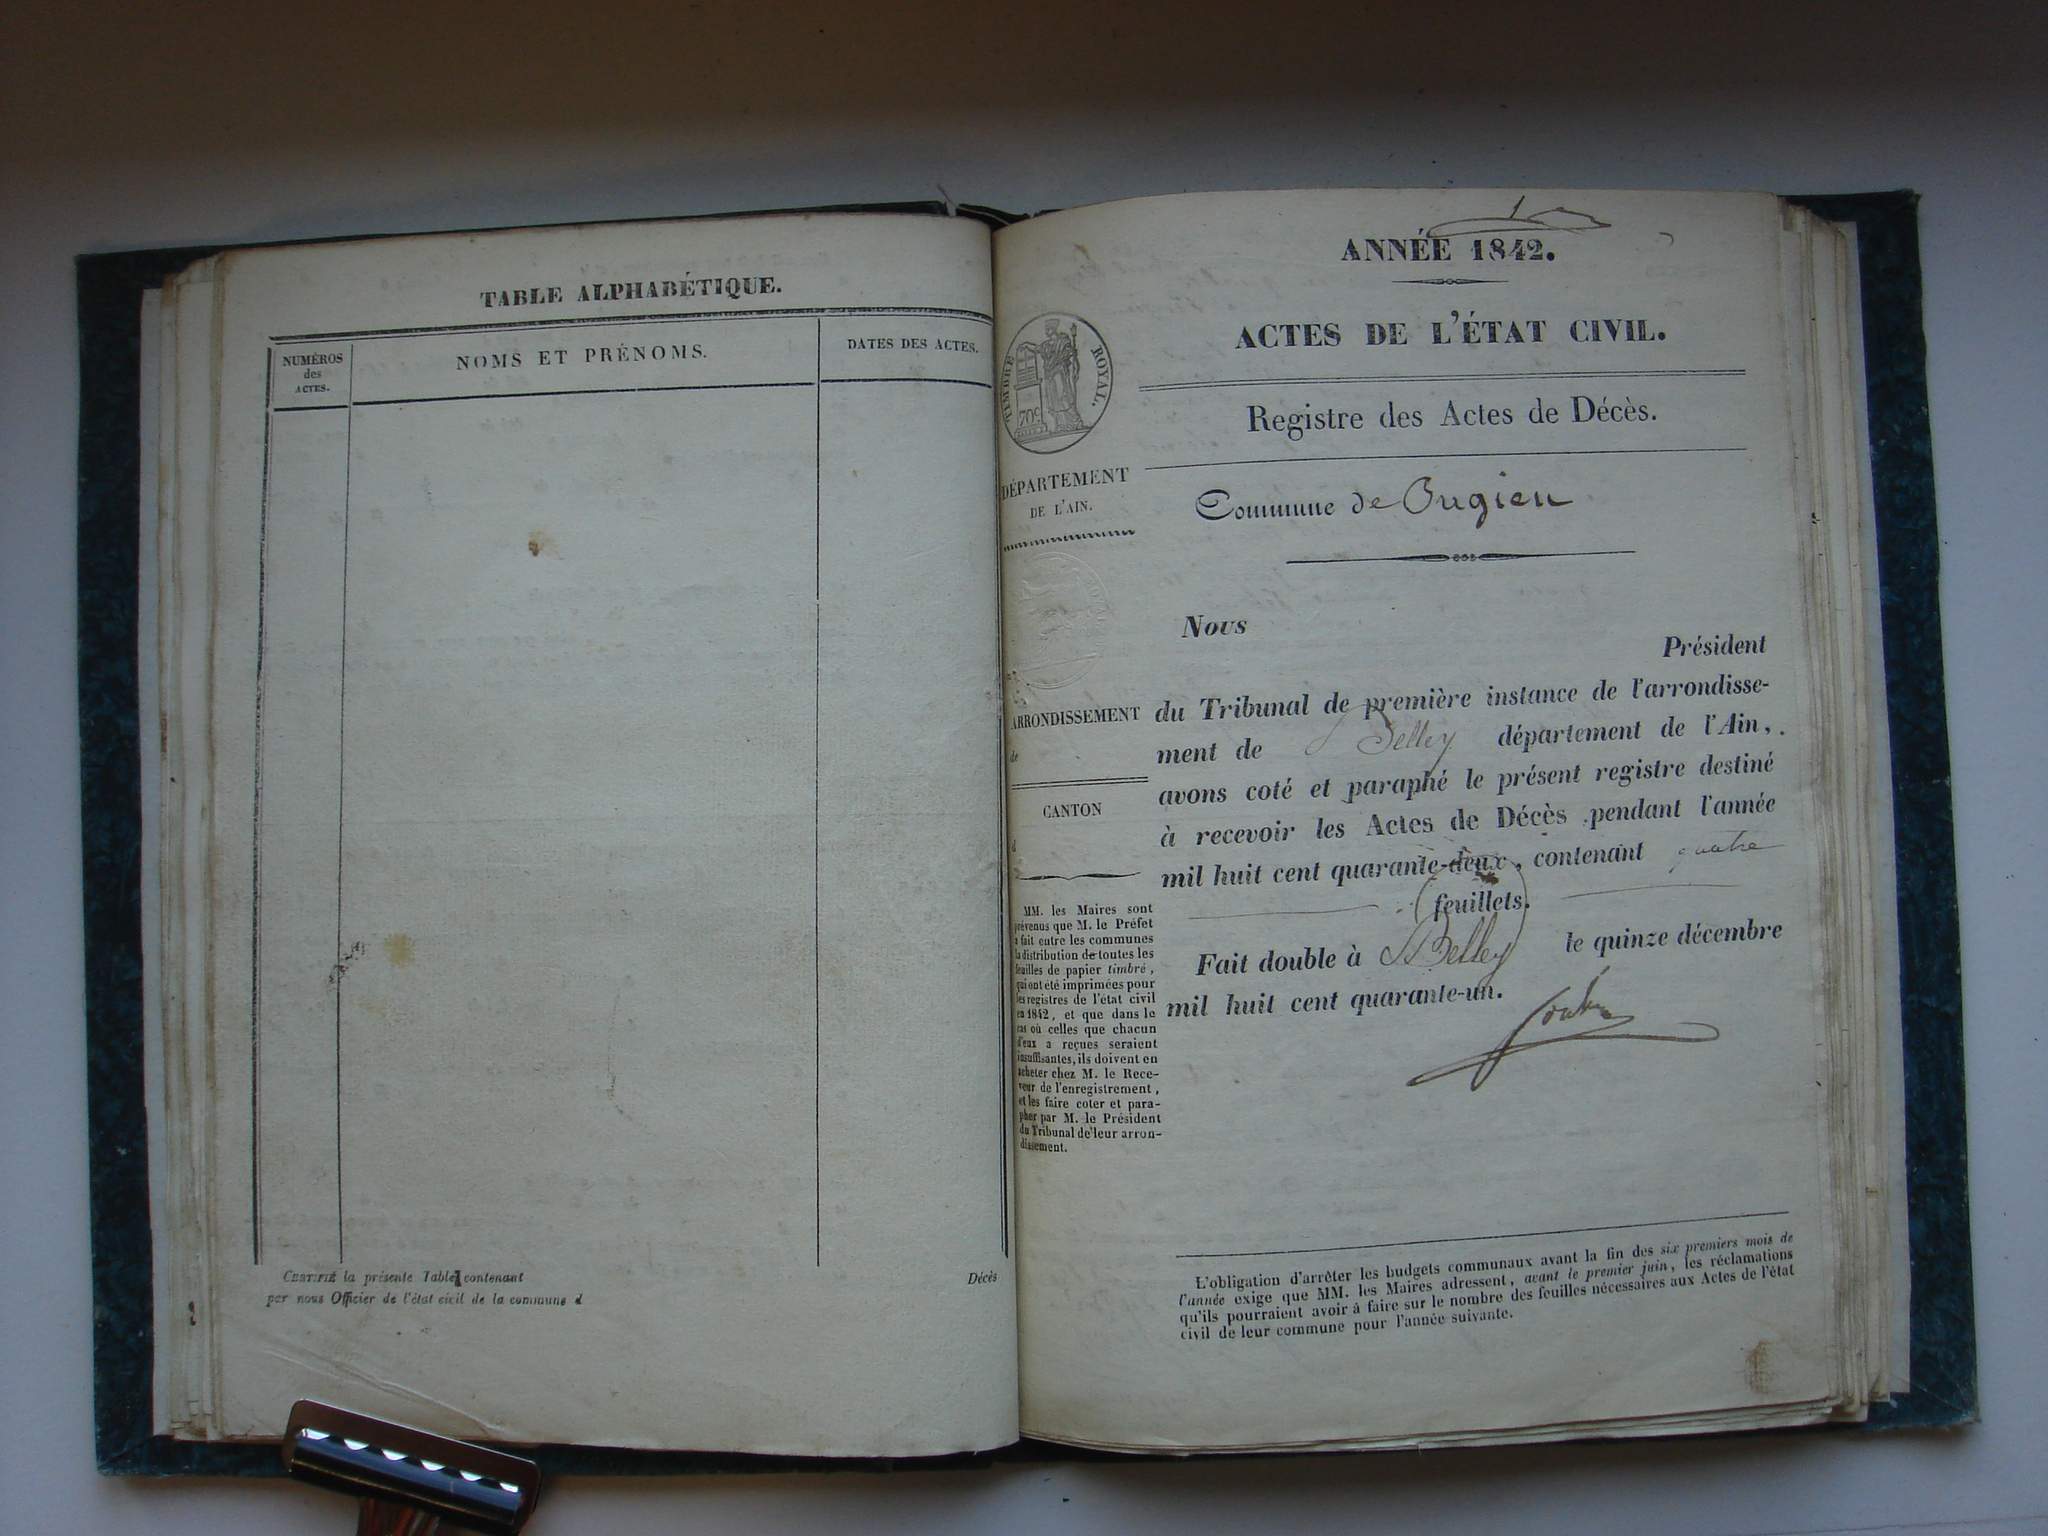 TABLE ALPHABÉTIQUE.
NUMÉROS
des
ACTES.
NOMS ET PRÉNOMS.
DATES DES ACTES.
CERTIFIÉ la présente Table contenant
par nous Officier de l'état civil de la commune d
Décès
1
ANNÉE 1842.
ACTES DE L'ÉTAT CIVIL.
TIMBRE ROYAL.
70c
Registre des Actes de Décès.
DÉPARTEMENT
DE L'AIN.
Commune de Ougieu
Nous
Président
du Tribunal de première instance de l'arrondisse-
ment de Belley département de l'Ain,
avons coté et paraphé le présent registre destiné
à recevoir les Actes de Décès pendant l'année
mil huit cent quarante-deux, contenant quatre
feuillets.
Fait double à Belley le quinze décembre
mil huit cent quarante-un.
ARRONDISSEMENT
de
CANTON
d
MM. les Maires sont
prévenus que M. le Préfet
a fait entre les communes
la distribution de toutes les
feuilles de papier timbré,
qui ont été imprimées pour
les registres de l'état civil
en 1842, et que dans le
cas où celles que chacun
d'eux a reçues seraient
insuffisantes, ils doivent en
acheter chez M. le Rece-
veur de l'enregistrement,
et les faire coter et para-
pher par M. le Président
du Tribunal de leur arron-
dissement.
L'obligation d'arrêter les budgets communaux avant la fin des six premiers mois de
l'année exige que MM. les Maires adressent, avant le premier juin, les réclamations
qu'ils pourraient avoir à faire sur le nombre des feuilles nécessaires aux Actes de l'état
civil de leur commune pour l'année suivante.